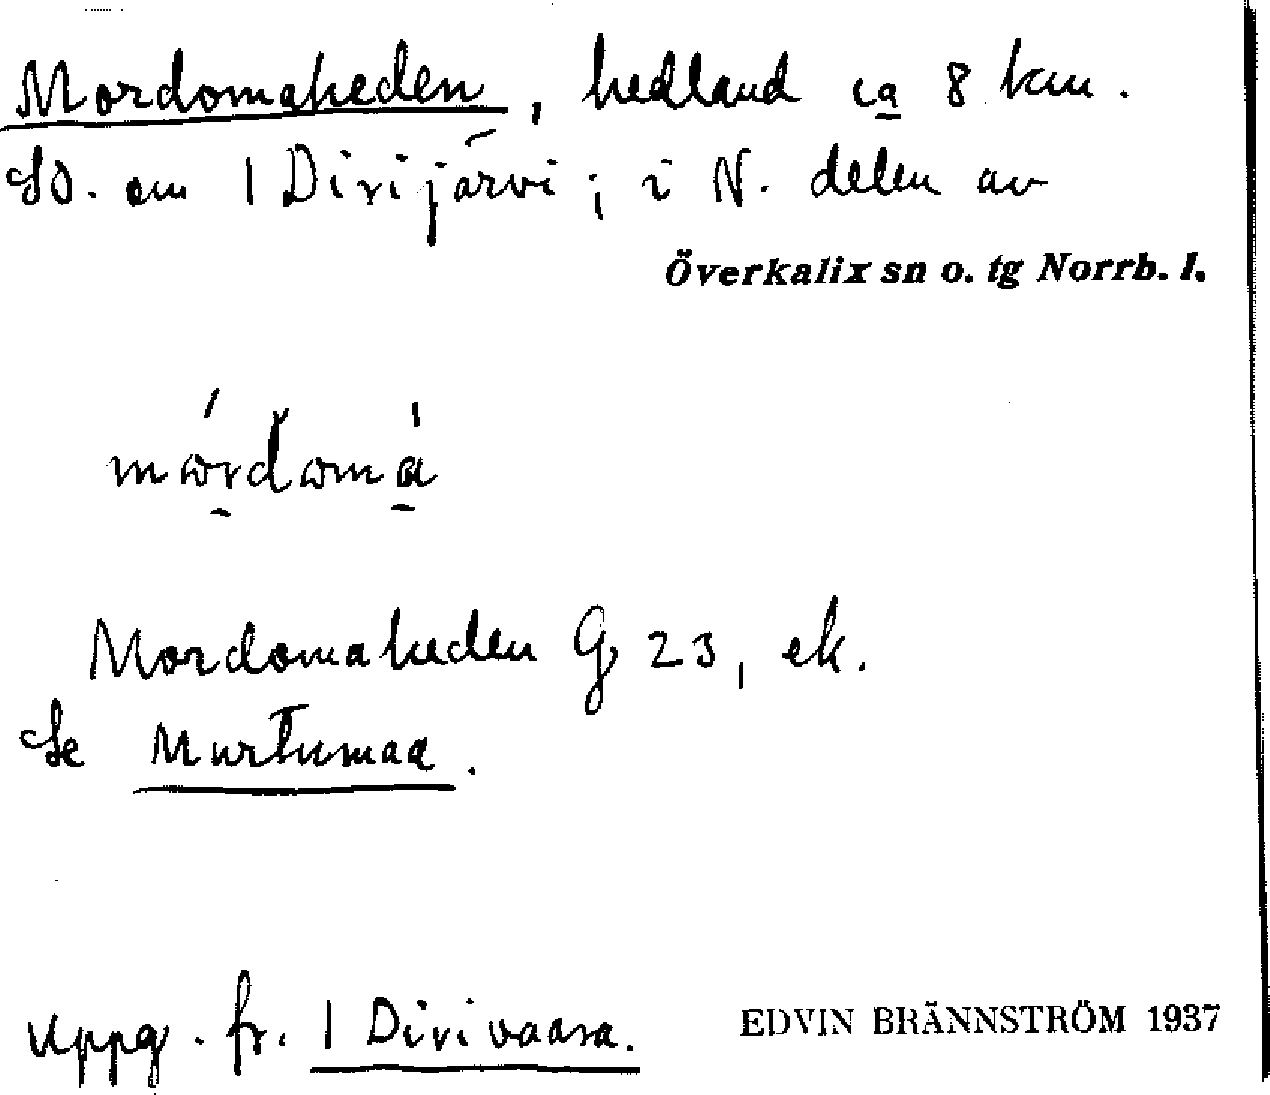 Mordomaheden, hedland ca 8 km.
SO. om 1 Dirijärvi; i N. delen av
Överkalix sn o. tg Norrb. l.
Mordomaheden G 23, ek.
Se Murtumaa.
Uppg. fr. 1 Dirivaara.
EDVIN BRÄNNSTRÖM 1937